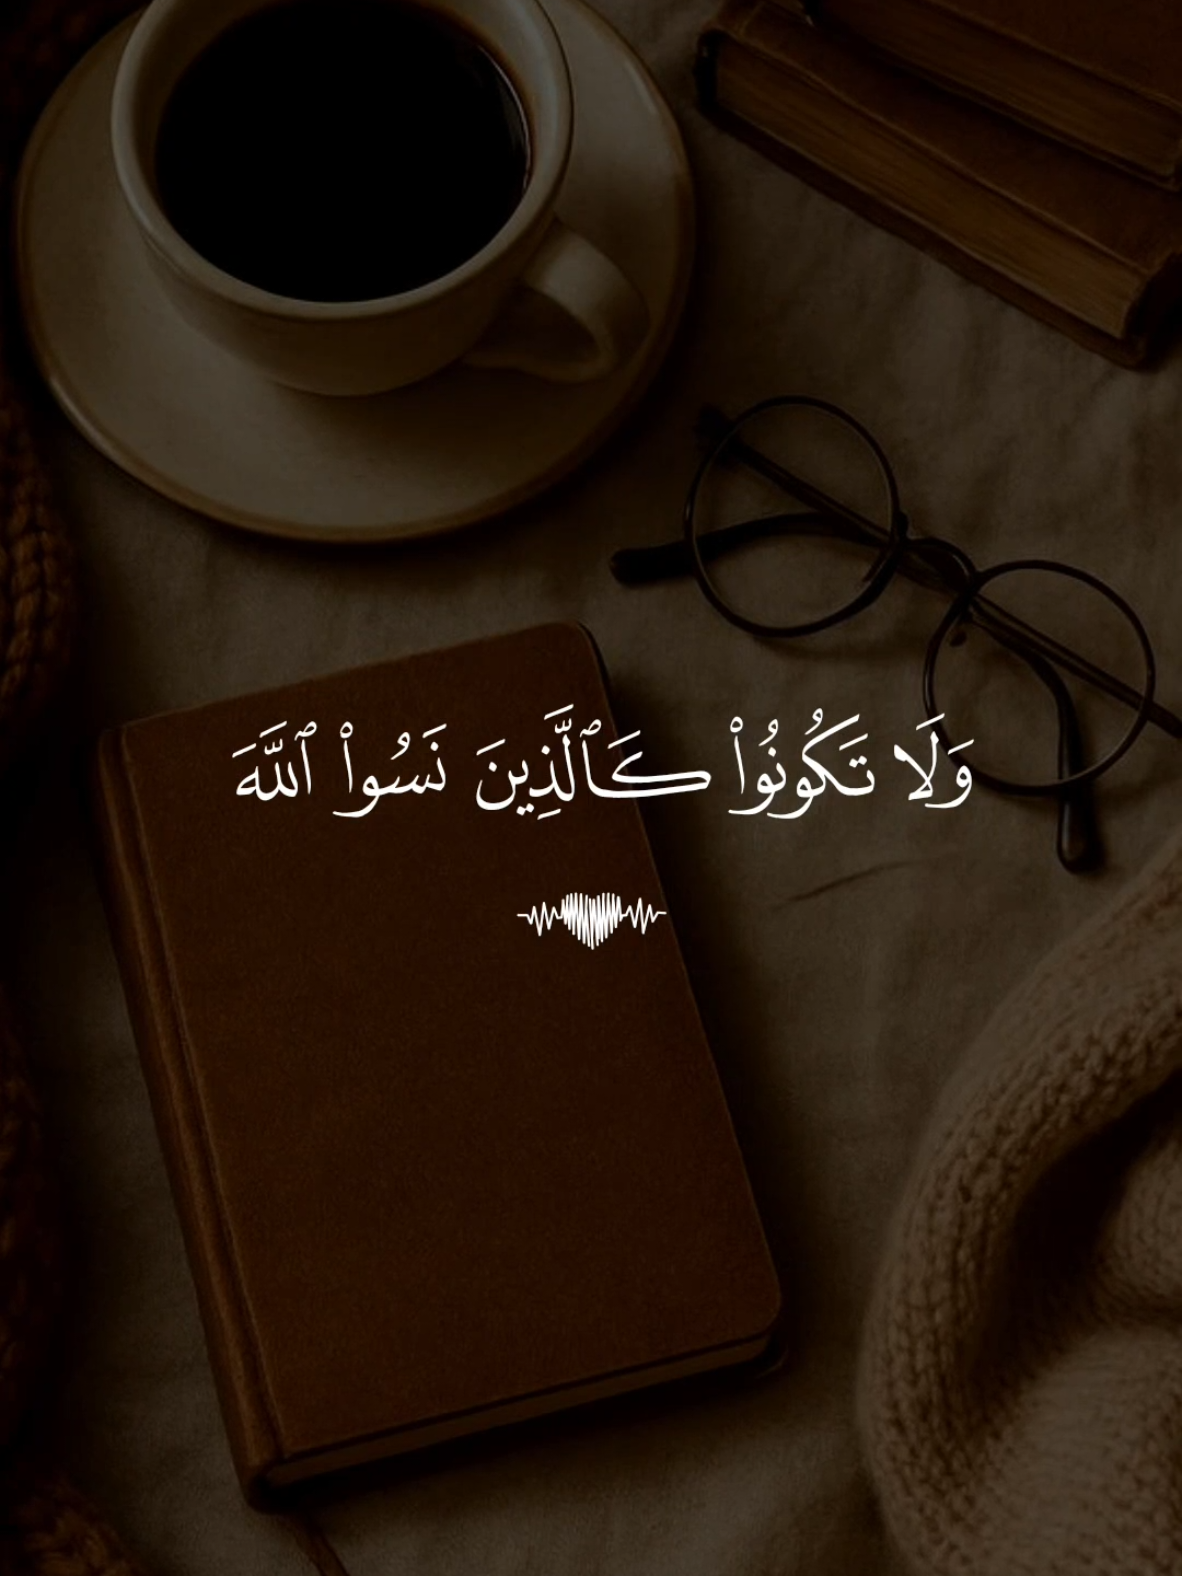 وَلَا تَكُونُوا۟ كَٱلَّذِينَ نَسُوا۟ ٱللَّهَ